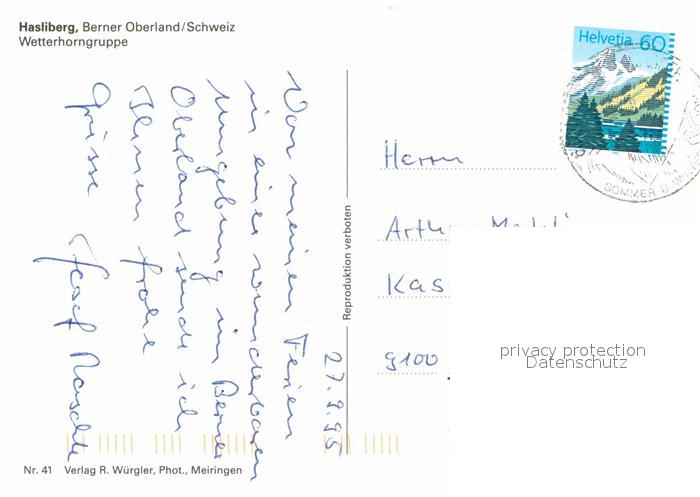 Hasliberg, Berner Oberland/Schweiz
Wetterhorngruppe
Helvetia 60
SOMMER U
27.9.95
Von meinen Ferien
in einer wunderbaren
Umgebung im Berner
Oberland sende ich
Ihnen frohe
Grüsse
Josef
Reproduktion verboten
Herrn
Arth
Kas
9100
privacy protection
Datenschutz
Nr. 41 Verlag R. Würgler, Phot., Meiringen